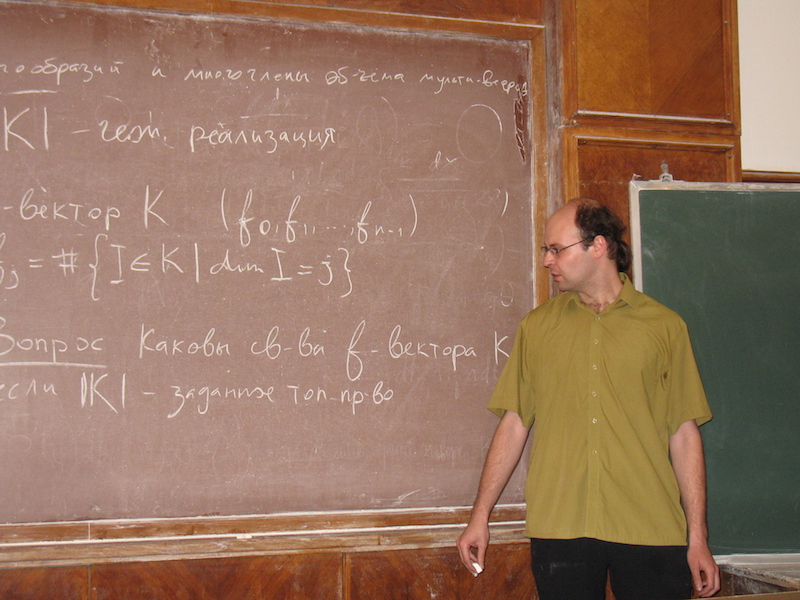 гообразий и многочлены объёма мульти-вееров
|K| - геом. реализация
-вектор K (f0, f1, ..., fn-1)
fj = #{I ∈ K | dim I = j}
Вопрос Каковы св-ва f-вектора K
если |K| - заданное топ. пр-во